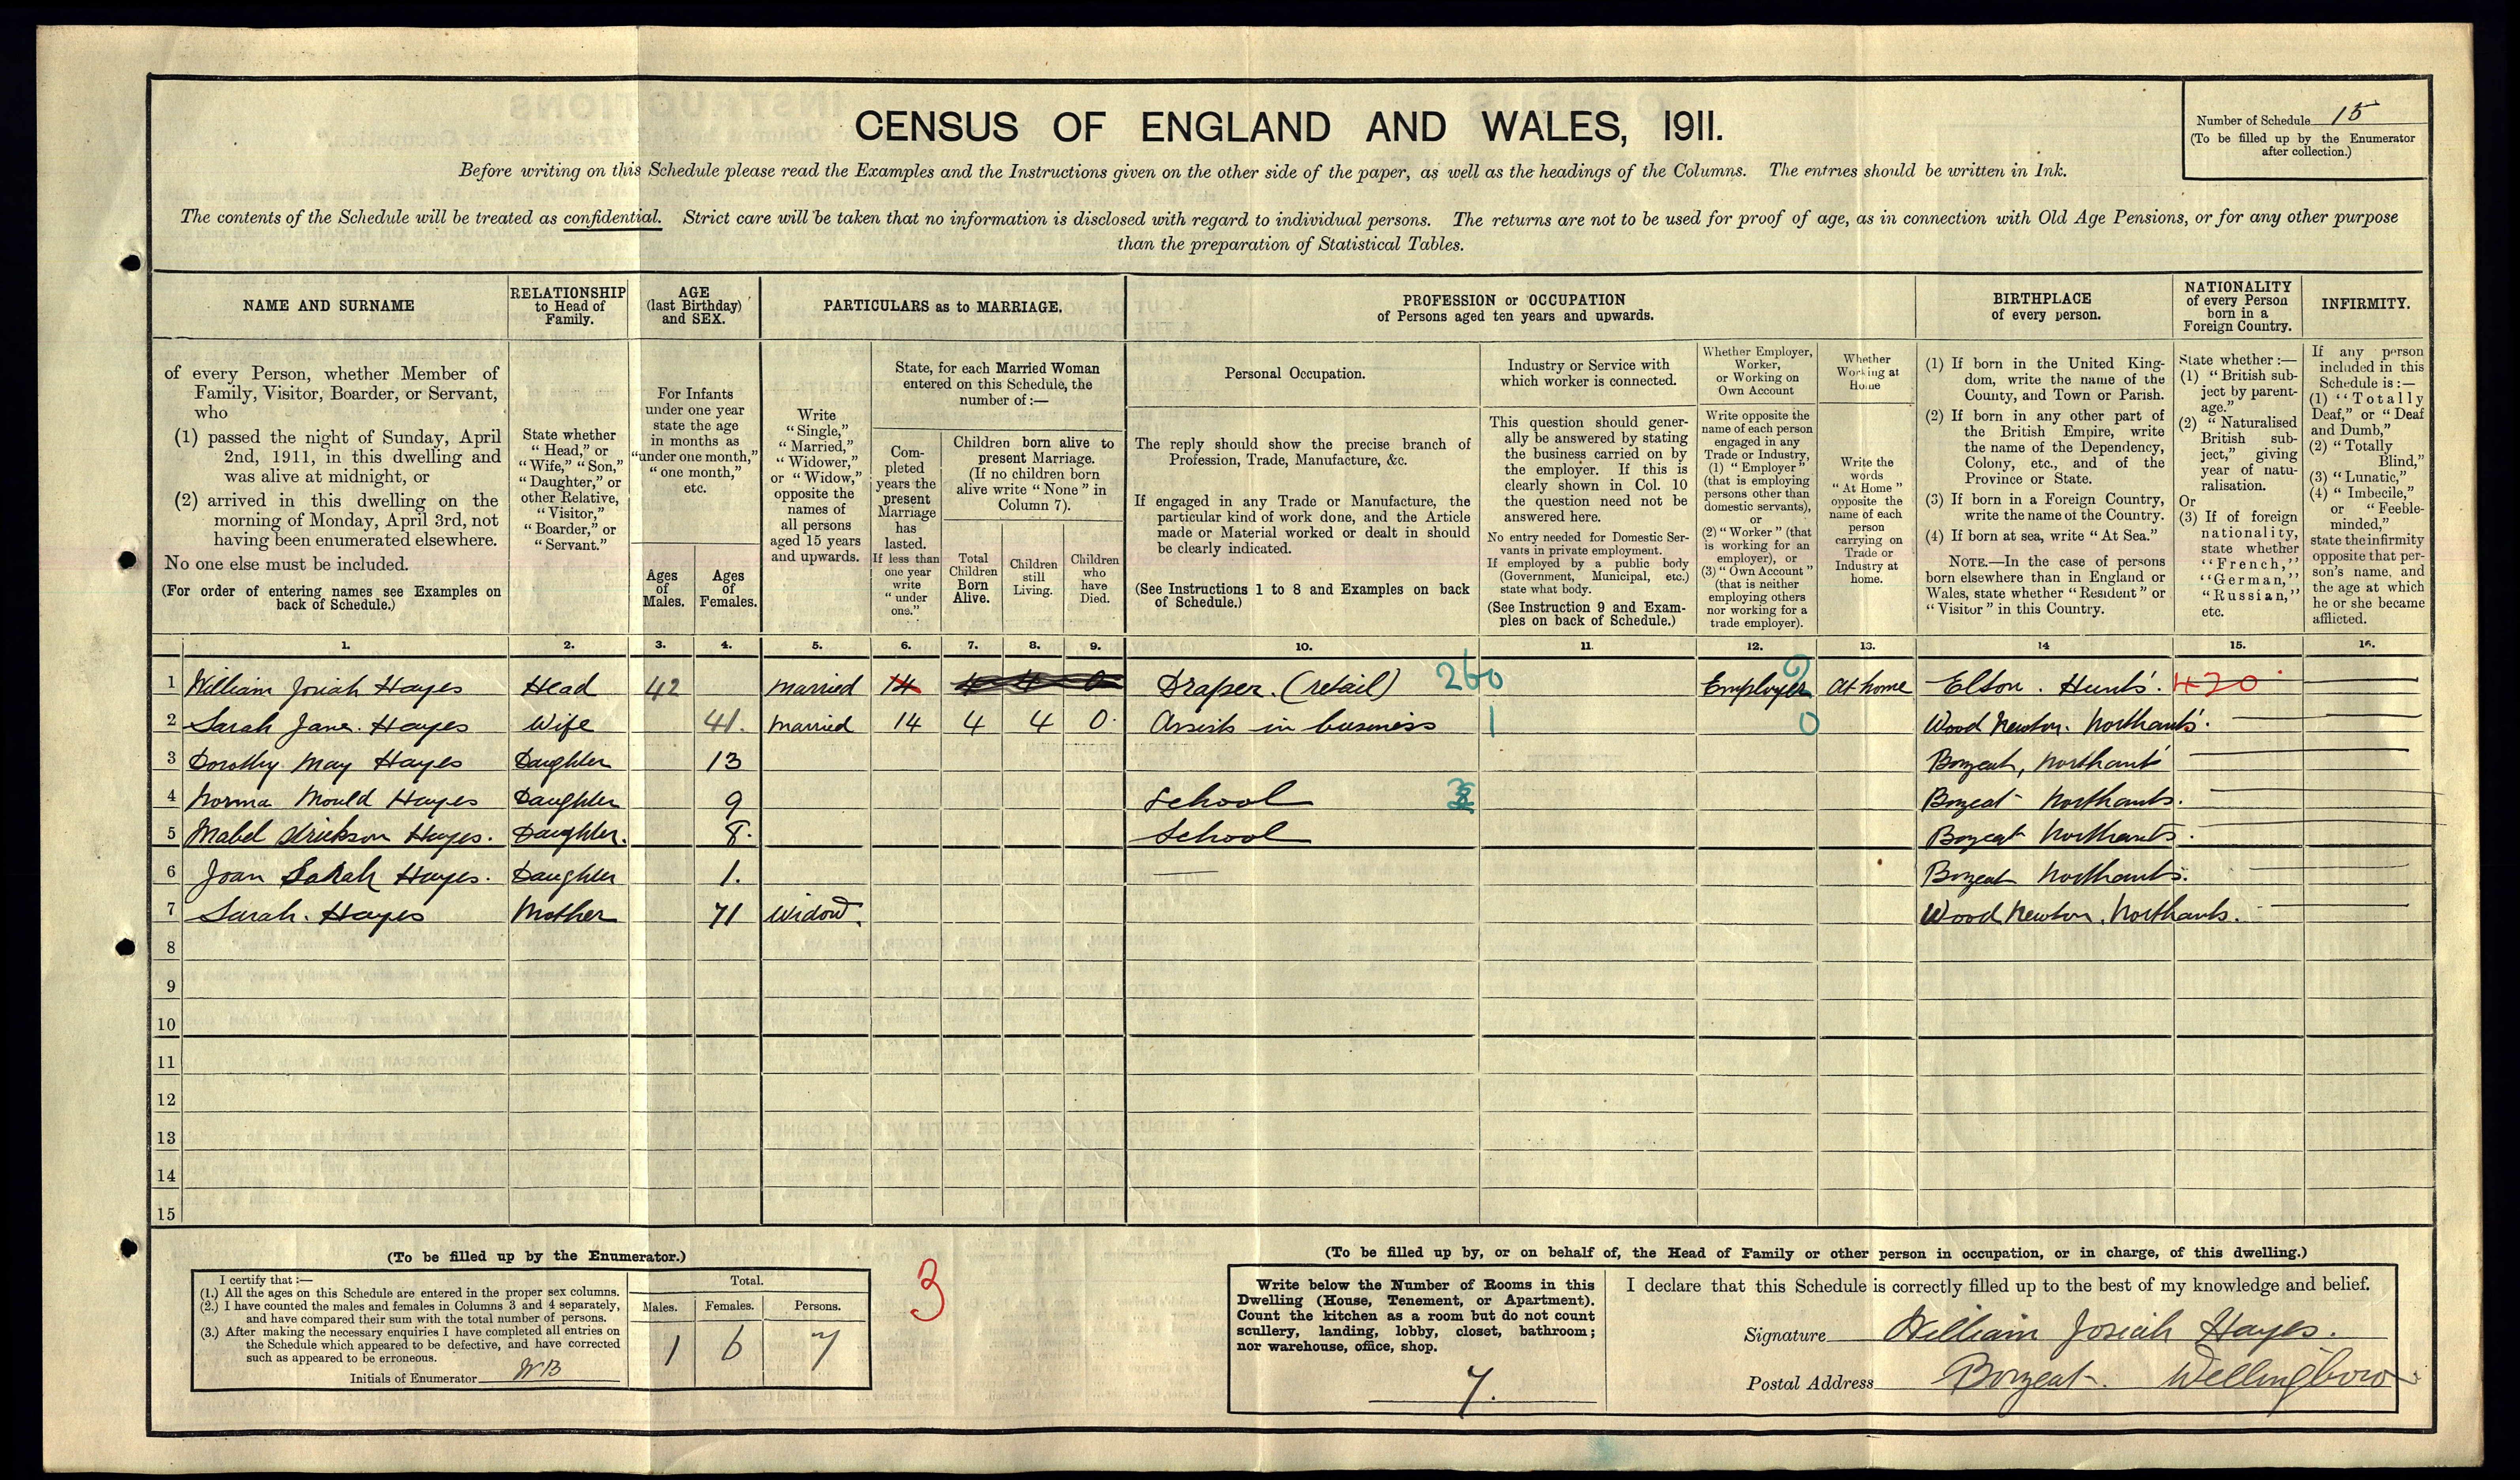 CENSUS OF ENGLAND AND WALES, 1911.
Number of Schedule 15
(To be filled up by the Enumerator
after collection.)
Before writing on this Schedule please read the Examples and the Instructions given on the other side of the paper, as well as the headings of the Columns. The entries should be written in Ink.
The contents of the Schedule will be treated as confidential. Strict care will be taken that no information is disclosed with regard to individual persons. The returns are not to be used for proof of age, as in connection with Old Age Pensions, or for any other purpose
than the preparation of Statistical Tables.
NAME AND SURNAME
of every Person, whether Member of
Family, Visitor, Boarder, or Servant,
who
(1) passed the night of Sunday, April
2nd, 1911, in this dwelling and
was alive at midnight, or
(2) arrived in this dwelling on the
morning of Monday, April 3rd, not
having been enumerated elsewhere.
No one else must be included.
(For order of entering names see Examples on
back of Schedule.)
RELATIONSHIP
to Head of
Family.
State whether
"Head," or
"Wife," "Son,"
"Daughter," or
other Relative,
"Visitor,"
"Boarder," or
"Servant."
AGE
(last Birthday)
and SEX.
For Infants
under one year
state the age
in months as
"under one month,"
"one month,"
etc.
Ages
of
Males.
Ages
of
Females.
PARTICULARS as to MARRIAGE.
Write
"Single,"
"Married,"
"Widower,"
or "Widow,"
opposite the
names of
all persons
aged 15 years
and upwards.
State, for each Married Woman
entered on this Schedule, the
number of:—
Com-
pleted
years the
present
Marriage
has
lasted.
If less than
one year
write
"under
one."
Children born alive to
present Marriage.
(If no children born
alive write "None" in
Column 7).
Total
Children
Born
Alive.
Children
still
Living.
Children
who
have
Died.
PROFESSION or OCCUPATION
of Persons aged ten years and upwards.
Personal Occupation.
The reply should show the precise branch of
Profession, Trade, Manufacture, &c.
If engaged in any Trade or Manufacture, the
particular kind of work done, and the Article
made or Material worked or dealt in should
be clearly indicated.
(See Instructions 1 to 8 and Examples on back
of Schedule.)
Industry or Service with
which worker is connected.
This question should gener-
ally be answered by stating
the business carried on by
the employer. If this is
clearly shown in Col. 10
the question need not be
answered here.
No entry needed for Domestic Ser-
vants in private employment.
If employed by a public body
(Government, Municipal, etc.)
state what body.
(See Instruction 9 and Exam-
ples on back of Schedule.)
Whether Employer,
Worker,
or Working on
Own Account
Write opposite the
name of each person
engaged in any
Trade or Industry,
(1) "Employer"
(that is employing
persons other than
domestic servants),
or
(2) "Worker" (that
is working for an
employer), or
(3) "Own Account"
(that is neither
employing others
nor working for a
trade employer).
Whether
Working at
Home
Write the
words
"At Home"
opposite the
name of each
person
carrying on
Trade or
Industry at
home.
BIRTHPLACE
of every person.
(1) If born in the United King-
dom, write the name of the
County, and Town or Parish.
(2) If born in any other part of
the British Empire, write
the name of the Dependency,
Colony, etc., and of the
Province or State.
(3) If born in a Foreign Country,
write the name of the Country.
(4) If born at sea, write "At Sea."
NOTE.—In the case of persons
born elsewhere than in England or
Wales, state whether "Resident" or
"Visitor" in this Country.
NATIONALITY
of every Person
born in a
Foreign Country.
State whether:—
(1) "British sub-
ject by parent-
age."
(2) "Naturalised
British sub-
ject," giving
year of natu-
ralisation.
Or
(3) If of foreign
nationality,
state whether
"French,"
"German,"
"Russian,"
etc.
INFIRMITY.
If any person
included in this
Schedule is:—
(1) "Totally
Deaf," or "Deaf
and Dumb,"
(2) "Totally
Blind,"
(3) "Lunatic,"
(4) "Imbecile,"
or "Feeble-
minded,"
state the infirmity
opposite that per-
son's name, and
the age at which
he or she became
afflicted.
1. 2. 3. 4. 5. 6. 7. 8. 9. 10. 11. 12. 13. 14 15. 16.
1 William Josiah Hayes Head 42 Married 14 4 4 0 Draper. (retail) 260 Employer At home Elton. Hunts'. 420
2 Sarah Jane. Hayes Wife 41. Married 14 4 4 0 Assists in business 1 0 Wood Newton. Northants'.
3 Dorothy May Hayes Daughter 13 Bozeat, Northants'
4 Norma Mould Hayes Daughter 9 School Bozeat Northants.
5 Mabel Hayes. Daughter. 8. School Bozeat Northants.
6 Joan Sarah Hayes. Daughter 1. Bozeat Northants.
7 Sarah. Hayes Mother 71 Widow. Wood Newton. Northants.
8
9
10
11
12
13
14
15
(To be filled up by the Enumerator.)
I certify that:—
(1.) All the ages on this Schedule are entered in the proper sex columns.
(2.) I have counted the males and females in Columns 3 and 4 separately,
and have compared their sum with the total number of persons.
(3.) After making the necessary enquiries I have completed all entries on
the Schedule which appeared to be defective, and have corrected
such as appeared to be erroneous.
Initials of Enumerator WB
Total.
Males. Females. Persons.
1 6 7
3
(To be filled up by, or on behalf of, the Head of Family or other person in occupation, or in charge, of this dwelling.)
Write below the Number of Rooms in this
Dwelling (House, Tenement, or Apartment).
Count the kitchen as a room but do not count
scullery, landing, lobby, closet, bathroom;
nor warehouse, office, shop.
7.
I declare that this Schedule is correctly filled up to the best of my knowledge and belief.
Signature William Josiah Hayes.
Postal Address Bozeat. Wellingboro